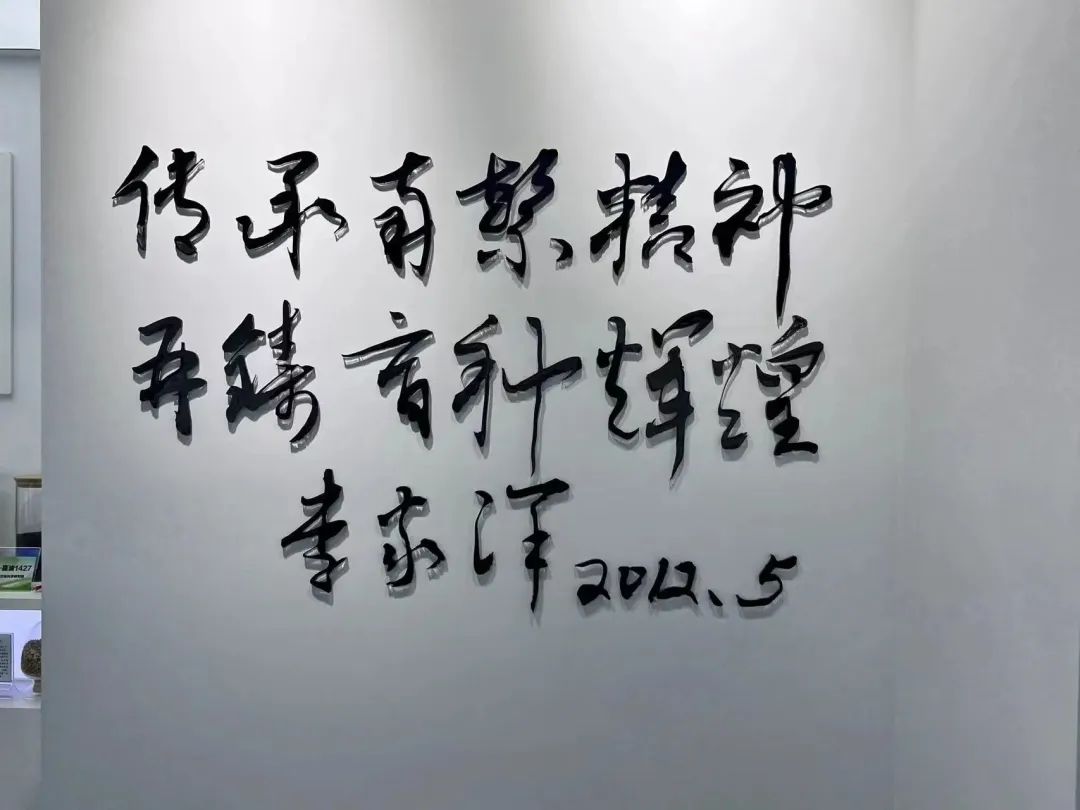 传承南繁精神
再铸育种辉煌
李家洋 2012.5
1427